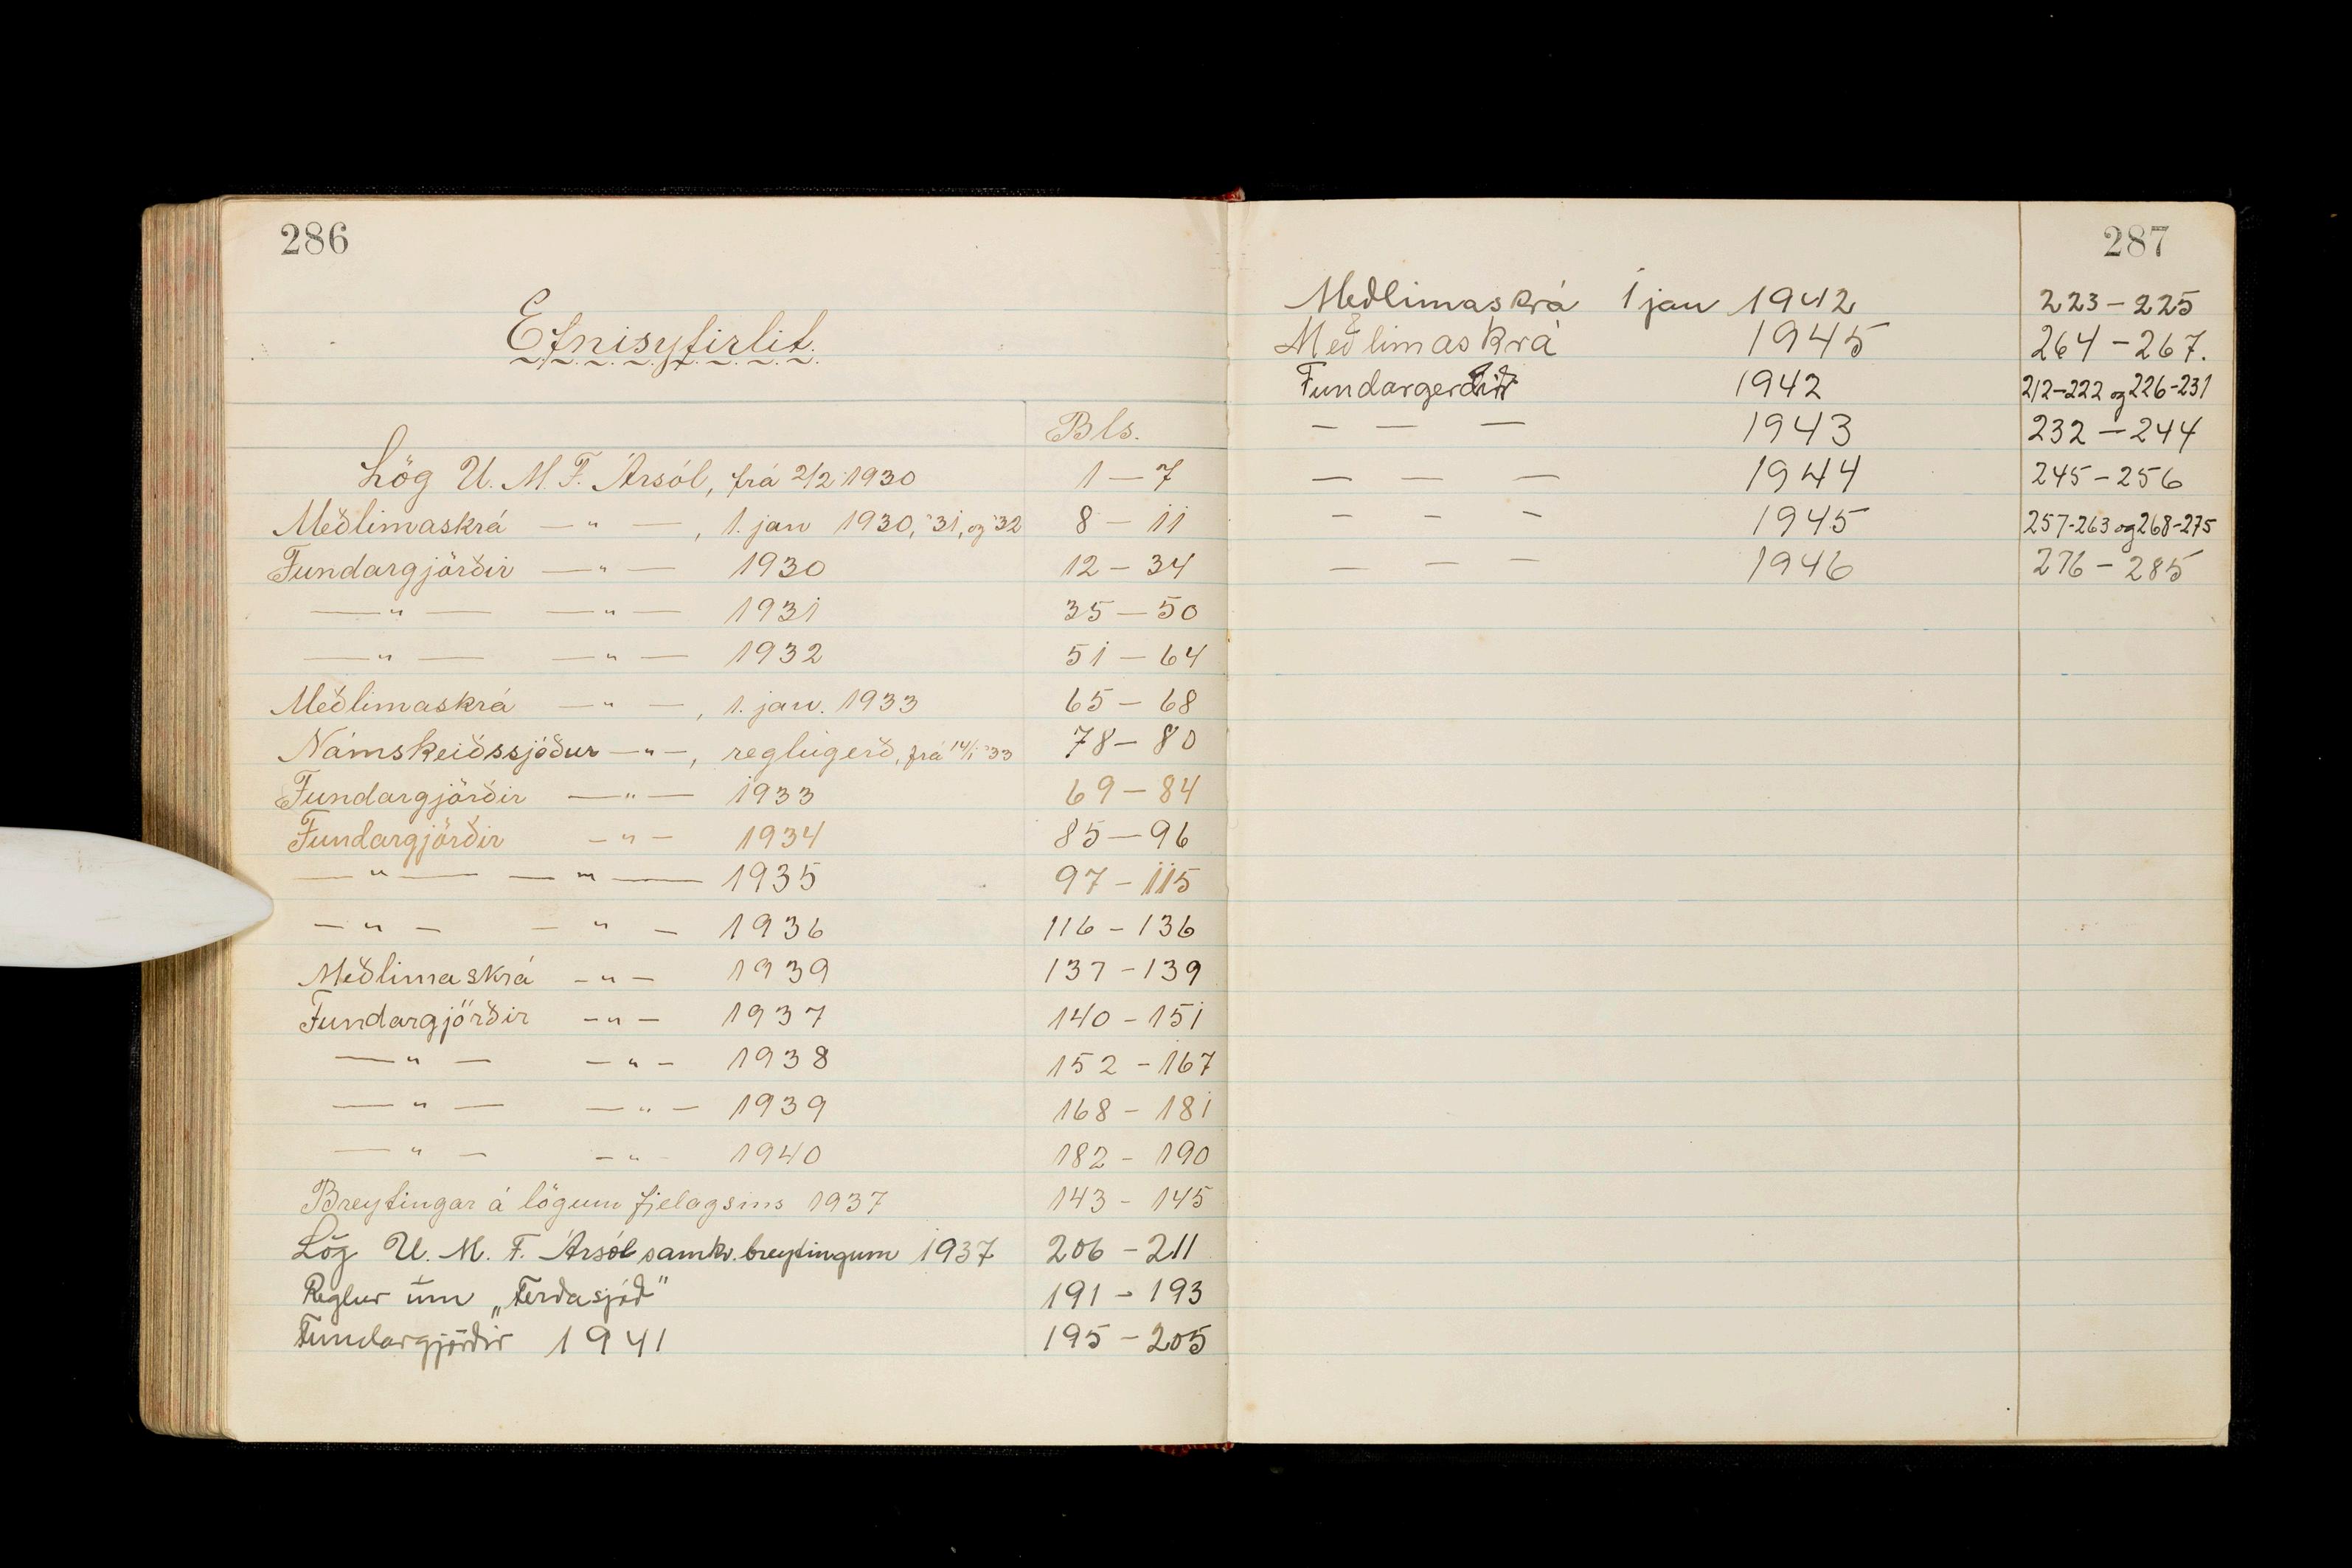 286
Efnisyfirlit.
Bls.
Lög U. M. F. Ársól, frá 2/2 1930 1 — 7
Meðlimaskrá — " — , 1. jan 1930, '31, og '32 8 — 11
Fundargjörðir — " — 1930 12 — 34
— " — — " — 1931 35 — 50
— " — — " — 1932 51 — 64
Meðlimaskrá — " — , 1. jan. 1933 65 — 68
Námskeiðssjóður — " — , reglugerð, frá 14/1 '33 78 — 80
Fundargjörðir — " — 1933 69 — 84
Fundargjörðir - " - 1934 85 — 96
— " — — " — 1935 97 — 115
— " — — " — 1936 116 — 136
Meðlimaskrá - " - 1939 137 - 139
Fundargjörðir - " - 1937 140 - 151
— " — - " - 1938 152 - 167
— " — — " — 1939 168 - 181
— " — - " - 1940 182 - 190
Breytingar á lögum fjelagsins 1937 143 - 145
Lög U. M. F. Ársól samkv. breytingum 1937 206 - 211
Reglur um „Ferðasjóð" 191 - 193
Fundargjörðir 1941 195 - 205
287
Meðlimaskrá 1 jan 1942 223 — 225
Meðlimaskrá 1945 264 — 267.
Fundargerðir 1942 212—222 og 226-231
— — — 1943 232 — 244
— — — 1944 245 — 256
- - - 1945 257-263 og 268-275
— — — 1946 276 — 285